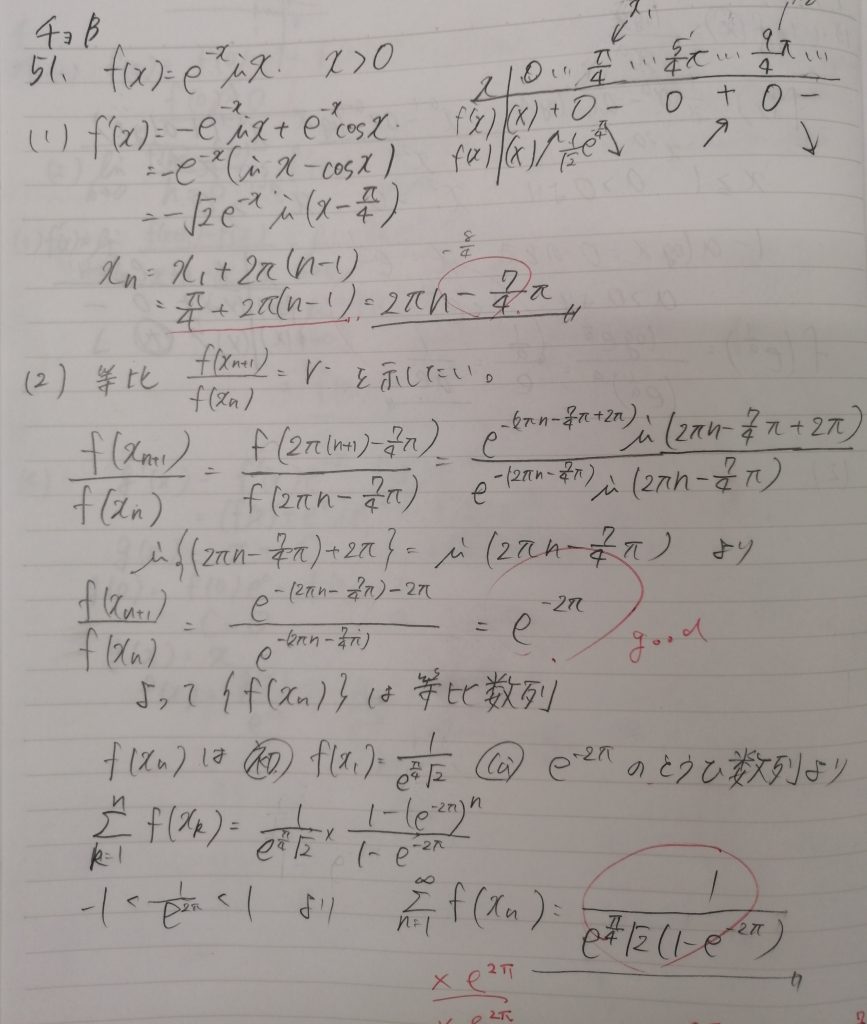 チョβ
51. f(x)=e^{-x} sin x. x>0
x_1
x | 0 … π/4 … 5/4π … 9/4π …
f'(x) | (x) + 0 − 0 + 0 −
f(x) | (x) ↗ 1/√2 e^{π/4} ↘ ↗ ↘
(1) f'(x)=-e^{-x} sin x + e^{-x} cos x.
=-e^{-x}(sin x - cos x)
=-√2 e^{-x} sin(x-π/4)
x_n = x_1 + 2π(n-1)
-8/4
= π/4 + 2π(n-1) = 2πn - 7/4 π
(2) 等比 f(x_{n+1})/f(x_n) = r を示したい。
f(x_{n+1})/f(x_n) = f(2π(n+1)-7/4π)/f(2πn-7/4π) = e^{-(2πn-7/4π+2π)} sin(2πn-7/4π+2π)/e^{-(2πn-7/4π)} sin(2πn-7/4π)
sin{(2πn-7/4π)+2π} = sin(2πn-7/4π) より
f(x_{n+1})/f(x_n) = e^{-(2πn-7/4π)-2π}/e^{-(2πn-7/4π)} = e^{-2π}
good
よって {f(x_n)} は 等比数列
f(x_n) は 初 f(x_1)=1/(e^{π/4}√2) 公 e^{-2π} のとうひ数列より
Σ_{k=1}^{n} f(x_k) = 1/(e^{π/4}√2) × (1-(e^{-2π})^n)/(1-e^{-2π})
-1 < 1/e^{2π} < 1 より Σ_{n=1}^{∞} f(x_n) = 1/(e^{π/4}√2(1-e^{-2π}))
× e^{2π}
× e^{2π}